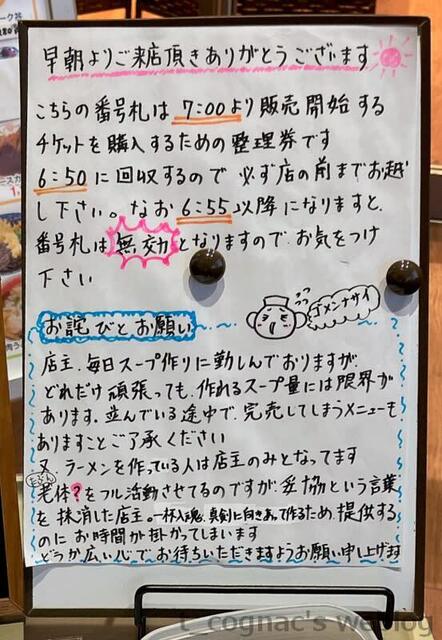 早朝よりご来店頂きありがとうございます
こちらの番号札は 7:00より販売開始する
チケットを購入するための整理券です
6:50に回収するので 必ず店の前までお越
し下さい。なお 6:55以降になりますと、
番号札は 無効 となりますので お気をつけ
下さい
お詫びとお願い
ゴメンナサイ
店主、毎日スープ作りに勤しんでおりますが
どれだけ頑張っても、作れるスープ量には限界が
あります。並んでいる途中で、完売してしまうメニューも
ありますことご了承ください
又、ラーメンを作っている人は店主のみとなってます
老体?をフル活動させてるのですが、妥協という言葉
を 抹消した店主。一杯入魂、真剣に向きあって作るため、提供する
のに お時間が掛かってしまいます
どうか広い心でお待ちいただきますようお願い申し上げます
t_cognac's weblog